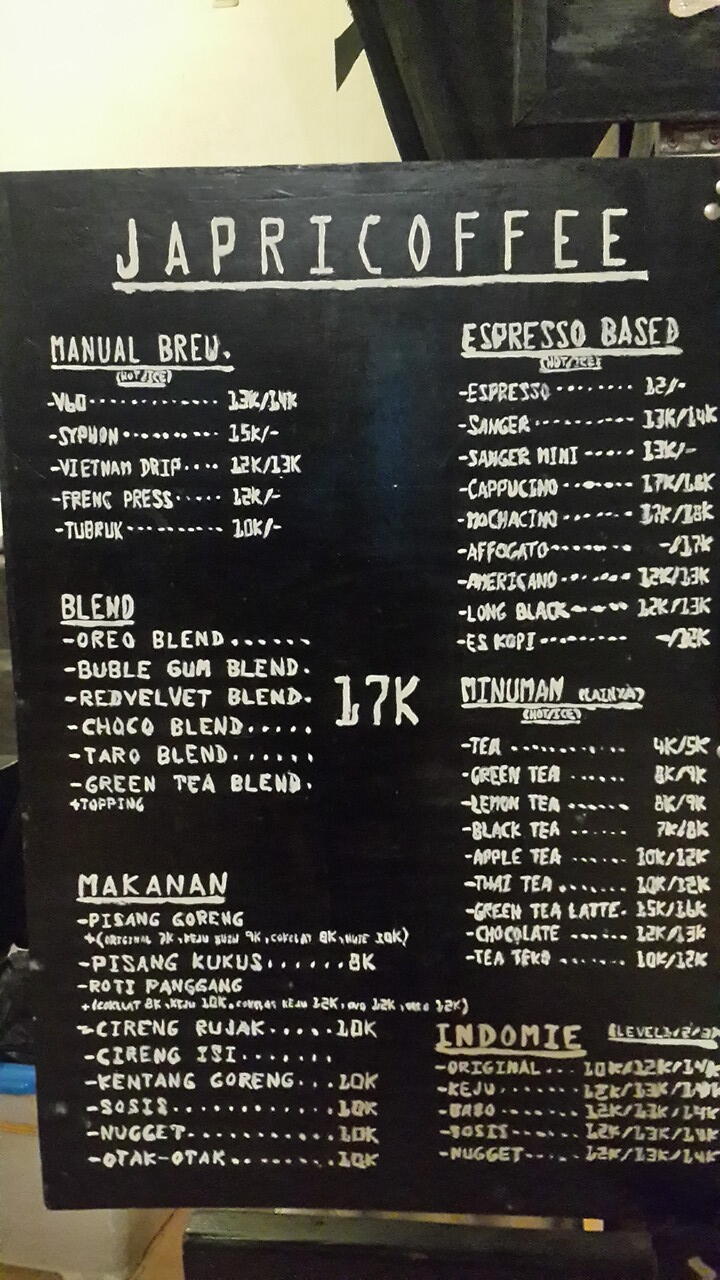 JAPRICOFFEE
MANUAL BREW.
(HOT/ICE)
-V60 ............ 13K/14K
-SYPHON ........ 15K/-
-VIETNAM DRIP.... 12K/13K
-FRENC PRESS..... 12K/-
-TUBRUK.......... 10K/-
BLEND
-OREO BLEND......
-BUBLE GUM BLEND.
-REDVELVET BLEND.
-CHOCO BLEND.....
-TARO BLEND......
-GREEN TEA BLEND.
+TOPPING
17K
MAKANAN
-PISANG GORENG
+(ORIGINAL 7K, KEJU SUSU 9K, COKELAT 8K, 10K)
-PISANG KUKUS......8K
-ROTI PANGGANG
+(COKLAT 8K, KEJU 10K, COKLAT KEJU 12K, 12K, 12K)
-CIRENG RUJAK.....10K
-CIRENG ISI.......
-KENTANG GORENG...10K
-SOSIS............10K
-NUGGET...........10K
-OTAK-OTAK........10K
ESPRESSO BASED
(HOT/ICE)
-ESPRESSO ........ 12/-
-SANGER .......... 13K/14K
-SANGER MINI ..... 13K/-
-CAPPUCINO ....... 17K/18K
-MOCHACINO ....... 17K/18K
-AFFOGATO......... -/17K
-AMERICANO........ 12K/13K
-LONG BLACK....... 12K/13K
-ES KOPI ......... -/12K
MINUMAN (LAINYA)
(HOT/ICE)
-TEA ............. 4K/5K
-GREEN TEA ....... 8K/9K
-LEMON TEA ....... 8K/9K
-BLACK TEA ...... 7K/8K
-APPLE TEA ...... 10K/12K
-THAI TEA ....... 10K/12K
-GREEN TEA LATTE. 15K/16K
-CHOCOLATE ...... 12K/13K
-TEA TEKO ....... 10K/12K
INDOMIE (LEVEL1/2/3)
-ORIGINAL... 10K/12K/14K
-KEJU....... 12K/13K/14K
-BASO ...... 12K/13K/14K
-SOSIS...... 12K/13K/14K
-NUGGET..... 12K/13K/14K